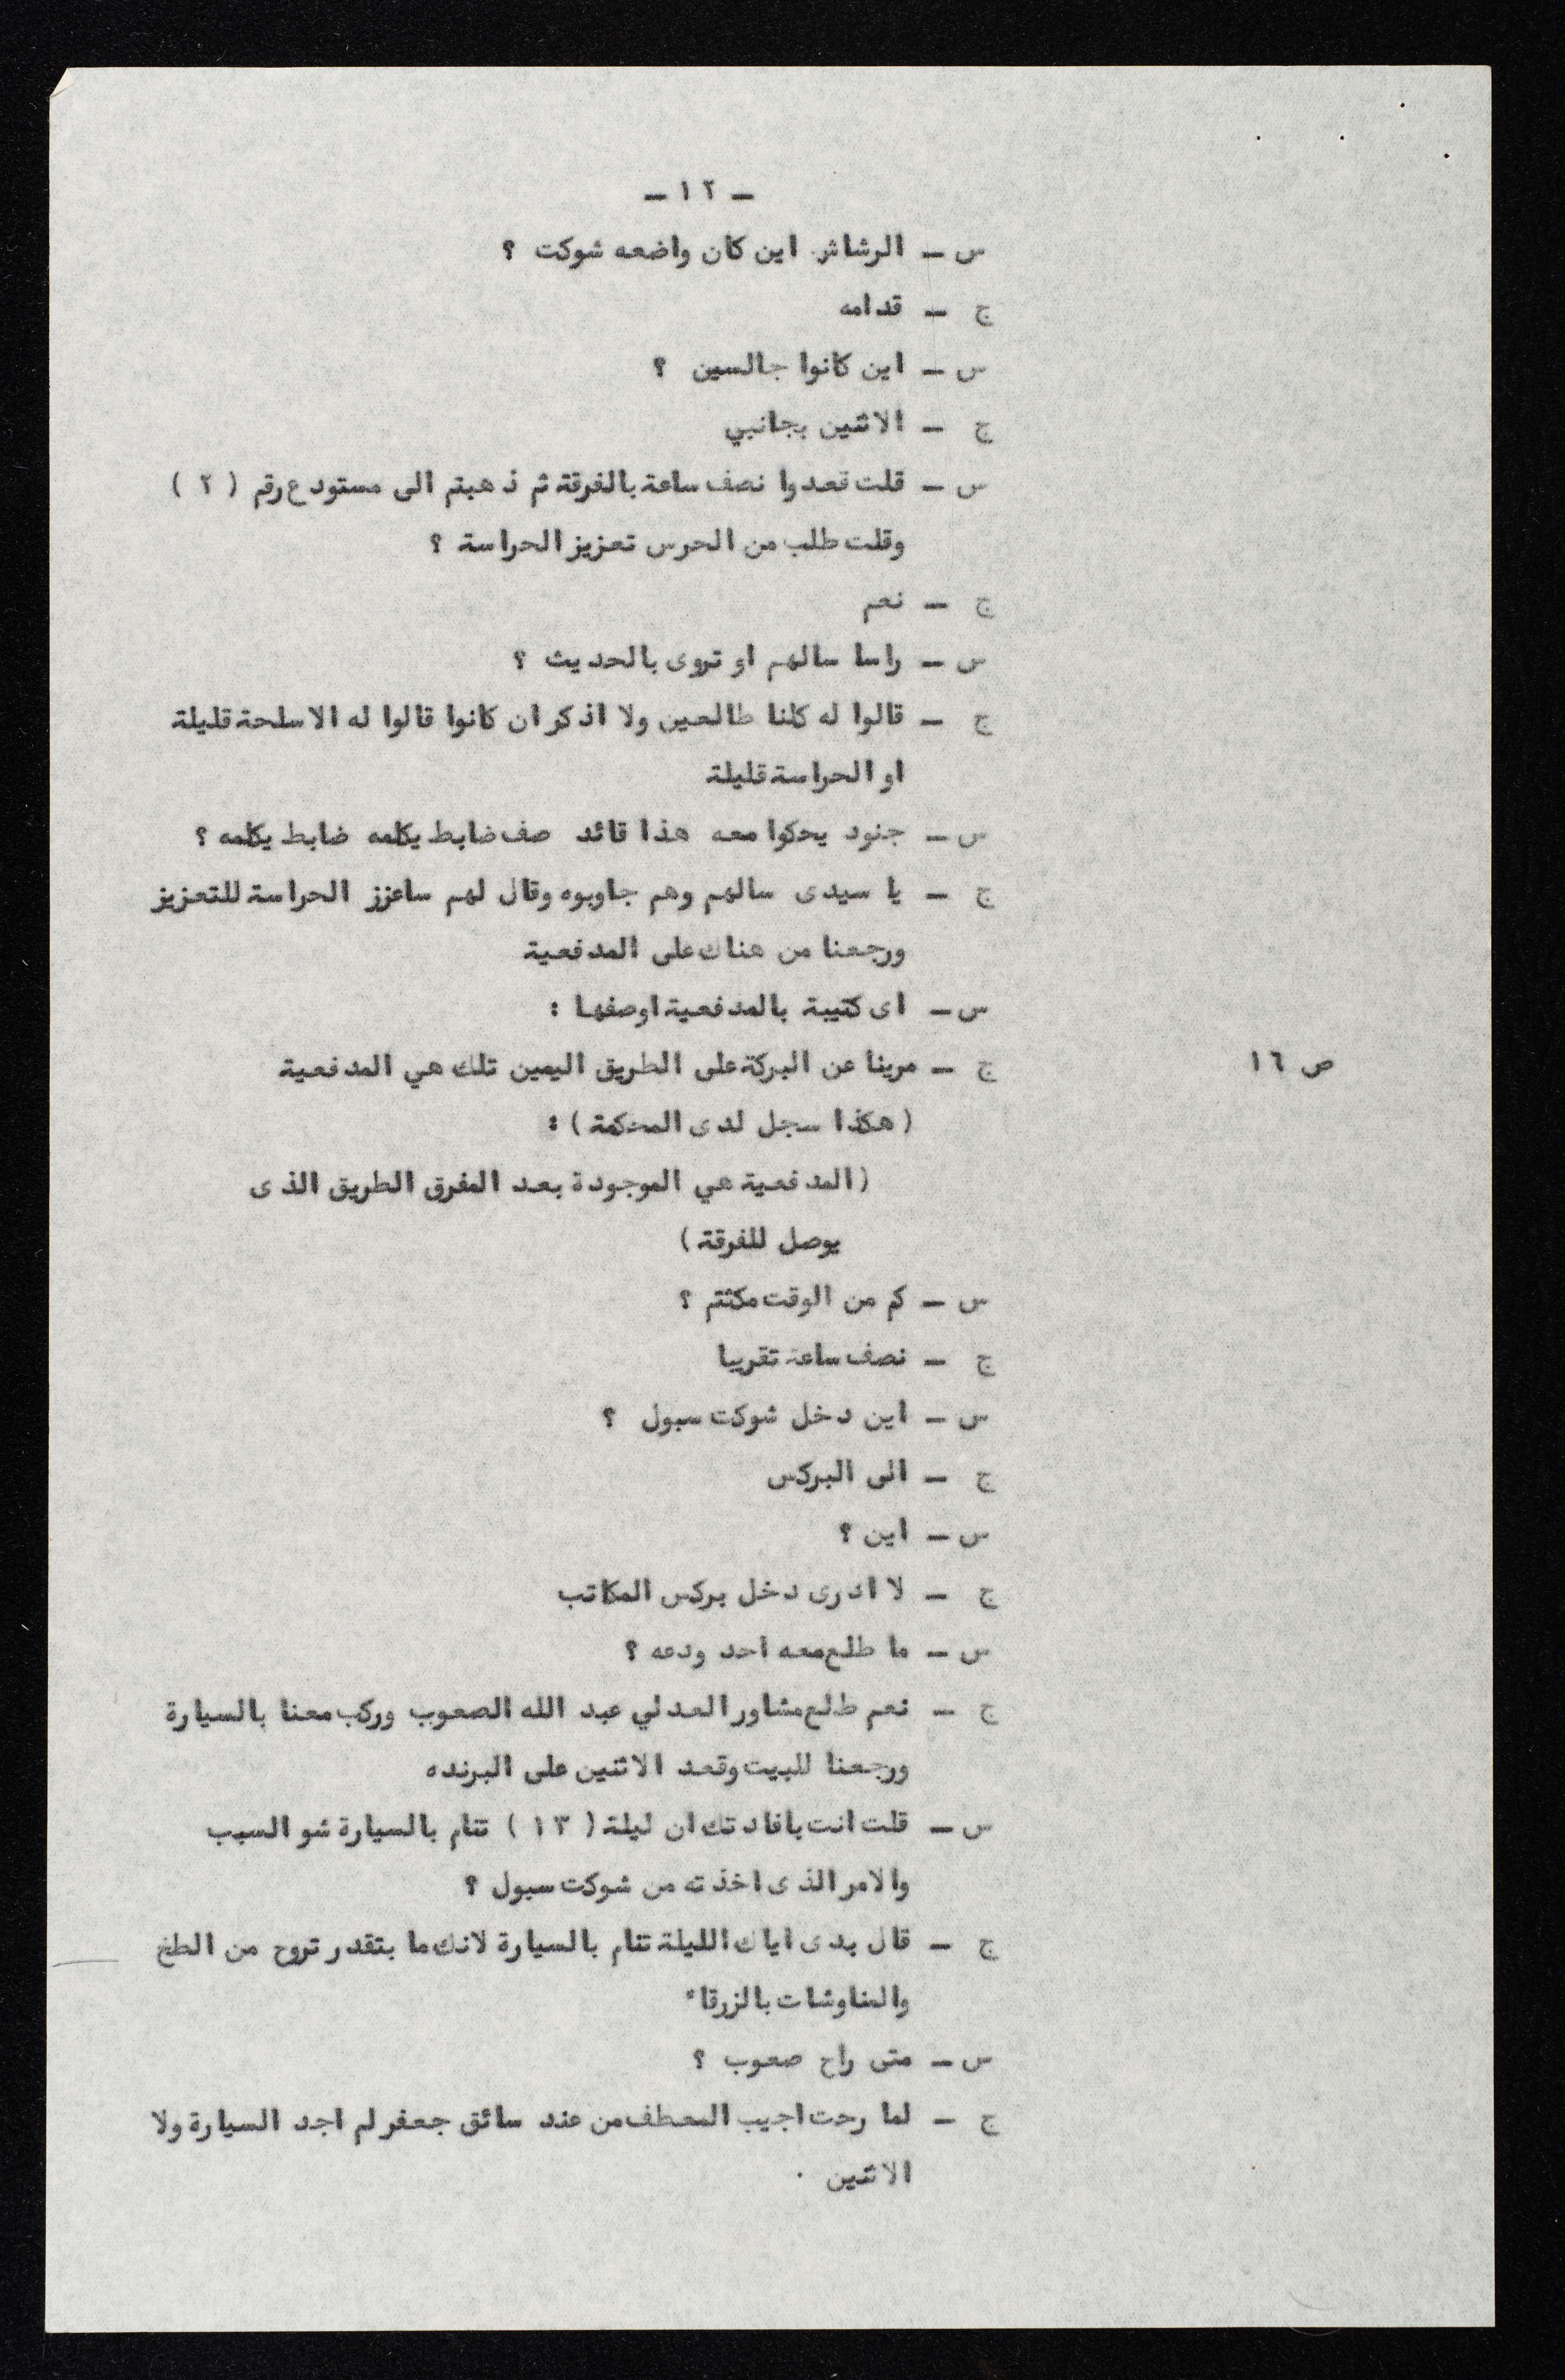 ـ ١٢ ـ
س ـ الرشاش اين كان واضعه شوكت ؟
ج ـ قدامه
س ـ اين كانوا جالسين ؟
ج ـ الاثنين بجانبي
س ـ قلت قعدوا نصف ساعة بالفرقة ثم ذهبتم الى مستودع رقم ( ٢ )
وقلت طلب من الحرس تعزيز الحراسة ؟
ج ـ نعم
س ـ راسا سالهم او تروى بالحديث ؟
ج ـ قالوا له كلنا طالعين ولا اذكر ان كانوا قالوا له الاسلحة قليلة
او الحراسة قليلة
س ـ جنود يحكوا معه هذا قائد صف ضابط يكلمه ضابط يكلمه ؟
ج ـ يا سيدى سالهم وهم جاوبوه وقال لهم ساعزز الحراسة للتعزيز
ورجعنا من هناك على المدفعية
س ـ اى كتيبة بالمدفعية اوصفها :
ج ـ مرينا عن البركة على الطريق اليمين تلك هي المدفعية
ص ١٦
( هكذا سجل لدى المحكمة ) :
( المدفعية هي الموجودة بعد المفرق الطريق الذى
يوصل للفرقة )
س ـ كم من الوقت مكثتم ؟
ج ـ نصف ساعة تقريبا
س ـ اين دخل شوكت سبول ؟
ج ـ الى البركس
س ـ اين ؟
ج ـ لا ادرى دخل بركس المكاتب
س ـ ما طلع معه احد ودعه ؟
ج ـ نعم طلع مشاور العدلي عبد الله الصعوب وركب معنا بالسيارة
ورجعنا للبيت وقعد الاثنين على البرنده
س ـ قلت انت بافادتك ان ليلة ( ١٣ ) تنام بالسيارة شو السبب
والامر الذى اخذته من شوكت سبول ؟
ج ـ قال بدى اياك الليلة تنام بالسيارة لانك ما بتقدر تروح من الطخ
والمناوشات بالزرقاء
س ـ متى راح صعوب ؟
ج ـ لما رحت اجيب المعطف من عند سائق جعفر لم اجد السيارة ولا
الاثنين .